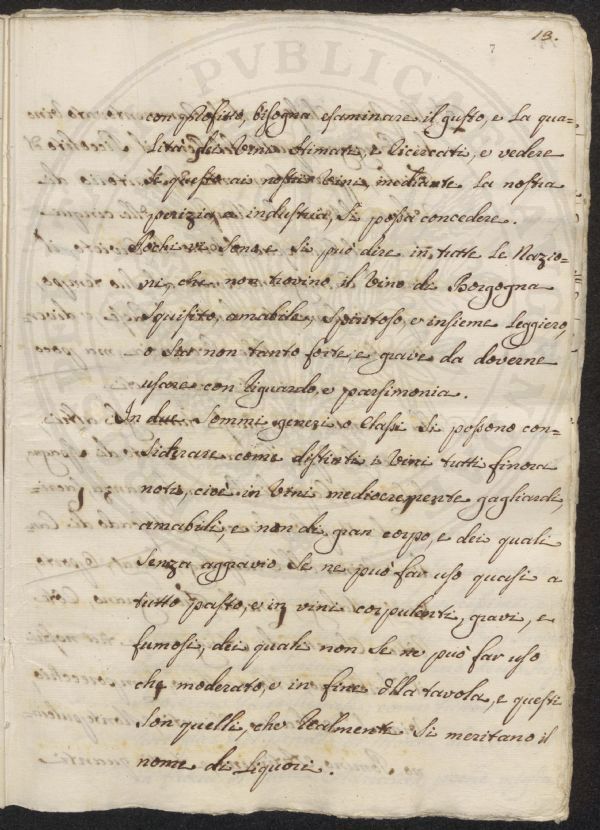 13.
con profitto, bisogna esaminare il gusto, e la qua-
lità de Vini stimati, e ricercati, e vedere
se questo ai nostri Vini, mediante la nostra
perizia, e industria, si possa concedere.
Pochi vi sono, e si può dire in tutte le Nazio-
ni, che non trovino il Vino di Borgogna
squisito, amabile, spiritoso, e insieme leggiero,
o sia non tanto forte, e grave da doverne
usare con riguardo, e parsimonia.
In due sommi generi o Classi si possono con-
siderare come distinti i Vini tutti finora
noti, cioè in Vini mediocremente gagliardi,
amabili, e non di gran corpo, e dei quali
senza aggravio se ne può far uso quasi a
tutto pasto, e in vini corpulenti, gravi, e
fumosi, dei quali non se ne può far uso
che moderato, e in fine della tavola, e questi
son quelli, che realmente si meritano il
nome di Liquori.
PVBLICA